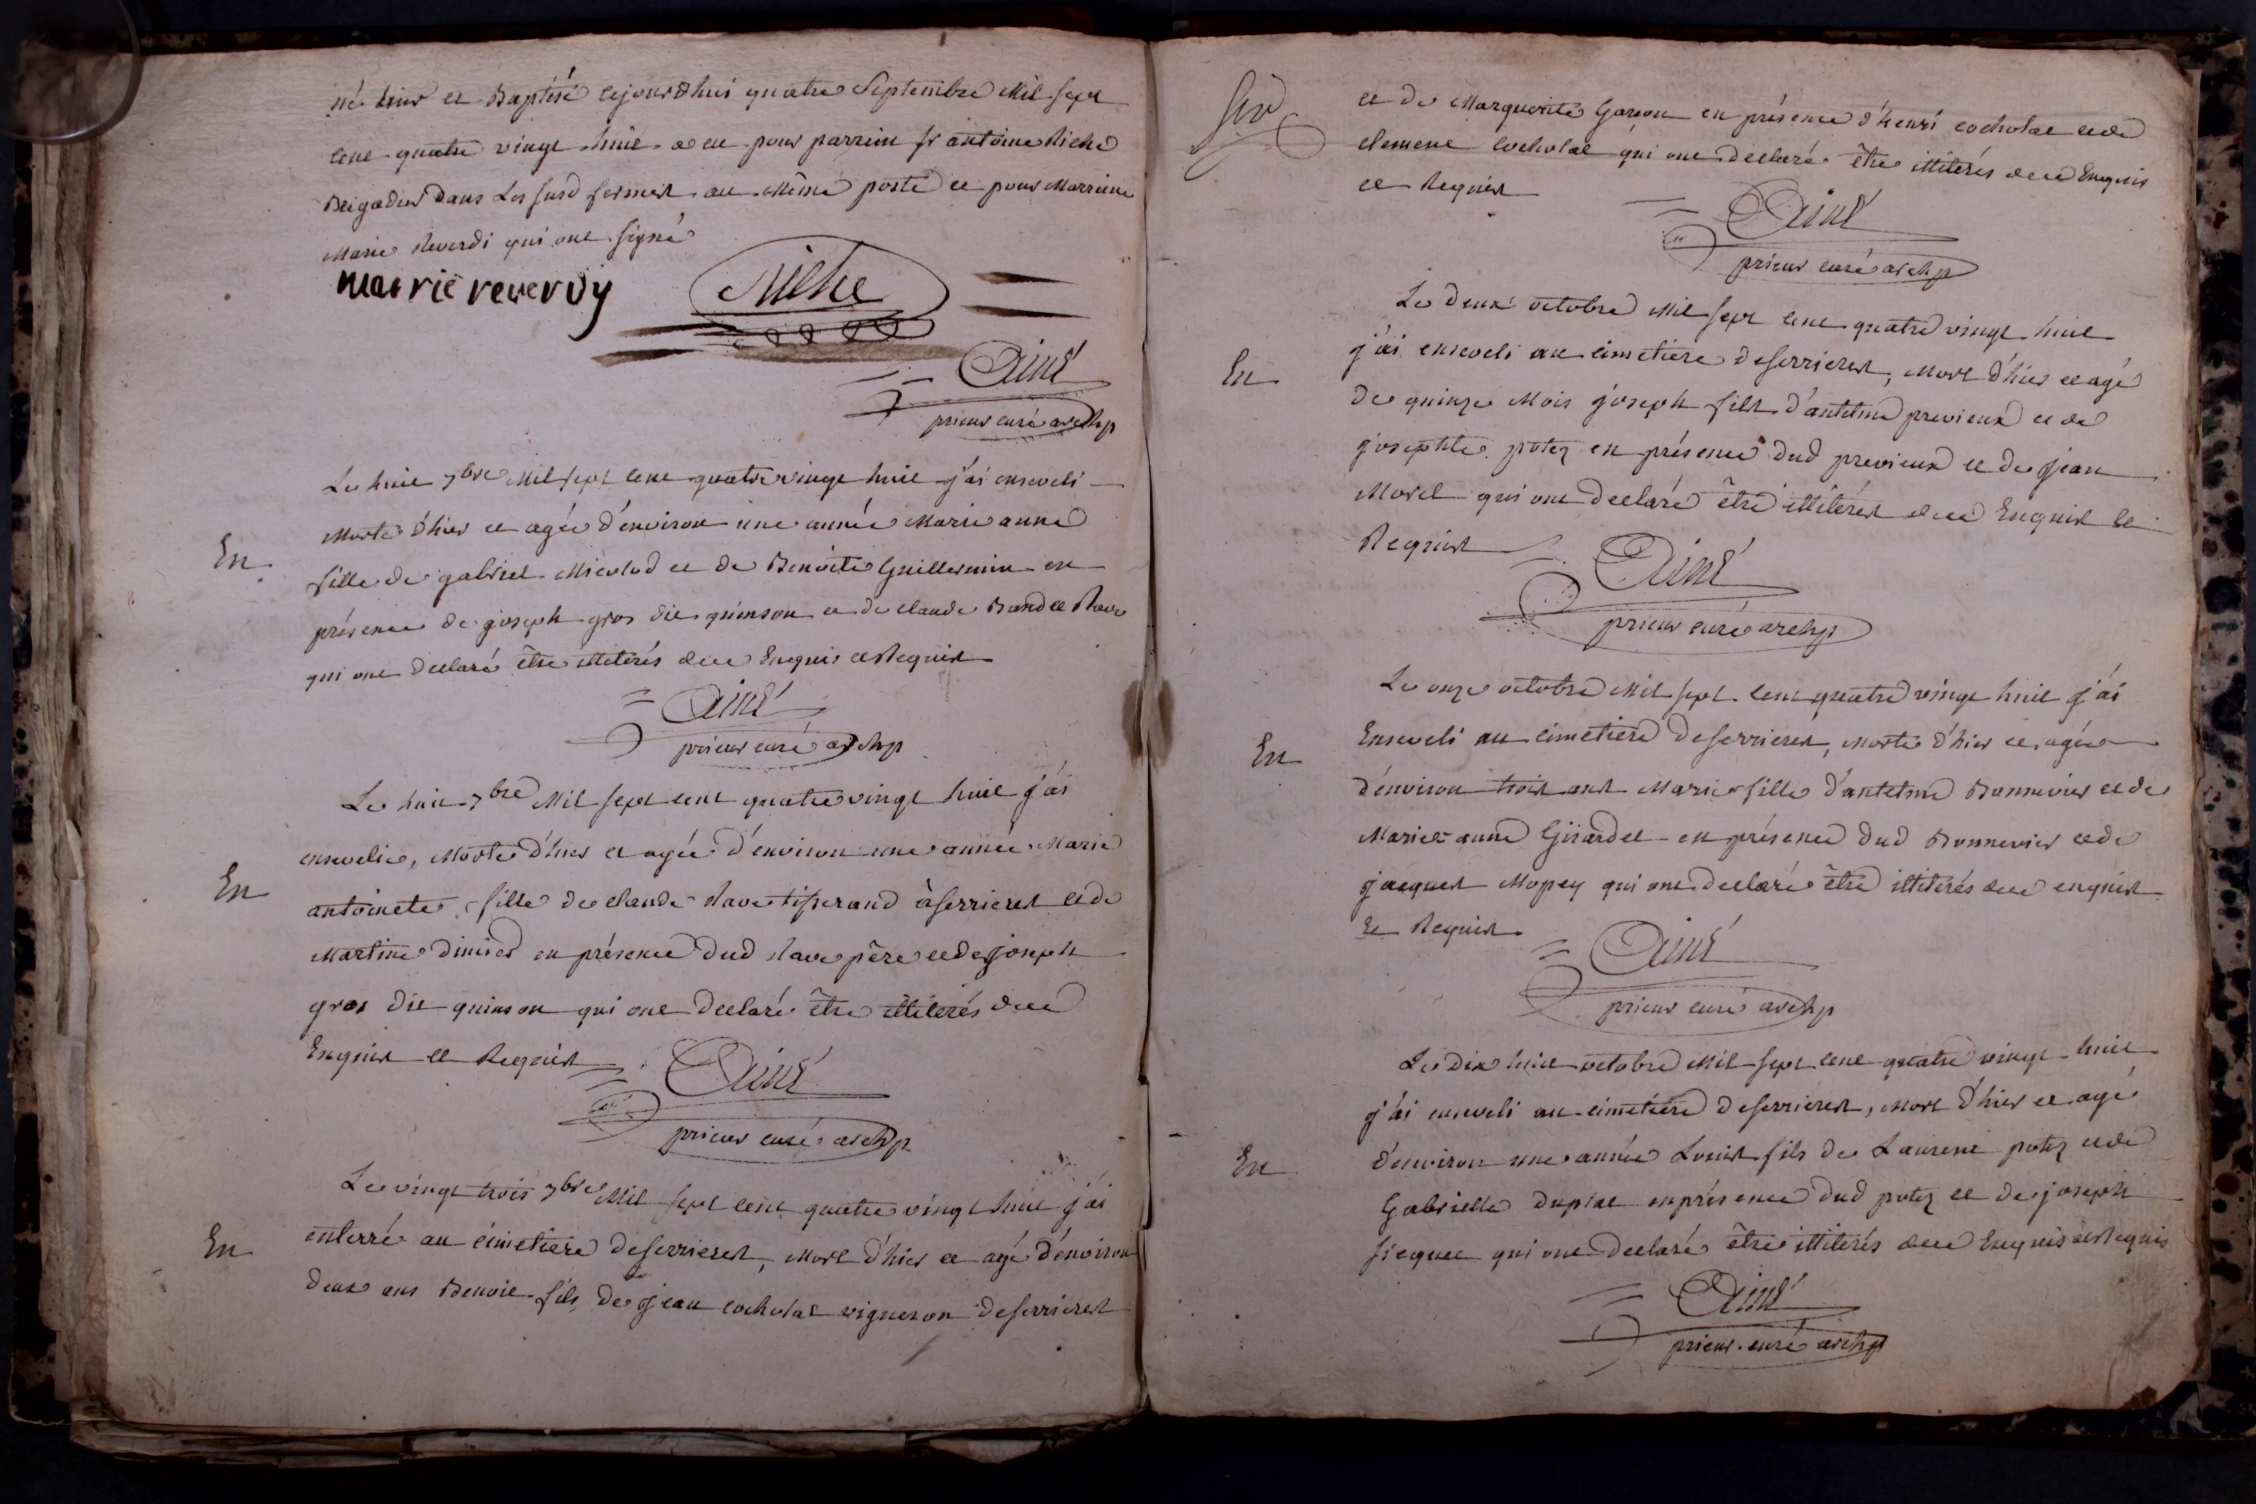 né hier et Baptisé cejourdhui quatre Septembre Mil sept
cent quatre vingt huit a eu pour parrein sr antoine Riche
Brigadier dans Les susd fermes au Même poste et pour Marreine
Marie Reverdi qui ont signé
marie reverdy Riche
Ainé
prieur curé archp
Le huit 7bre Mil sept cent quatre vingt huit j'ai enseveli
En
Morte d'hier et agée d'environ une année Marie anne
fille de gabriel Micolod et de Benoite Guillermin en
présence de joseph gros dit quinson et de claude Bandet Rave
qui ont declaré être illiterés de ce Enquis et Requis
Ainé
prieur curé archp
Le huit 7bre Mil sept cent quatre vingt huit j'ai
En
ensevelie, Morte d'hier et agée d'environ une année Marie
antoinete fille de claude Rave tisserand à serrieres et de
Martine dimier en présence dud Rave père et de joseph
gros dit quinson qui ont declaré être illiterés de ce
Enquis et Requis
Ainé
prieur curé archp
Le vingt trois 7bre Mil sept cent quatre vingt huit j'ai
En
enterré au cimetiere deserrieres, Mort d'hier et agé d'environ
deux ans Benoit fils de jean cocholat vigneron deserrieres
et de Marguerite Garçon en présence d'henri cocholat et de
clement cocholat qui ont declaré être illiterés de ce Enquis
et Requis
Ainé
prieur curé archp
Le deux octobre Mil sept cent quatre vingt huit
En
j'ai enseveli au cimetiere deserrieres, Mort d'hier et agé
de quinze Mois joseph fils d'antelme previeux et de
josephte potez en présence dud previeux et de jean
Morel qui ont declaré être illiterés de ce Enquis et
Requis
Ainé
prieur curé archp
Le onze octobre Mil sept cent quatre vingt huit j'ai
En
Enseveli au cimetiere deserrieres, Morte d'hier et agée
d'environ trois ans Marie fille d'antelme Bonnevier et de
Marie anne Girardet en présence dud Bonnevier et de
jacques Mopey qui ont declaré être illiterés de ce enquis
Et Requis
Ainé
prieur curé archp
Le dix huit octobre Mil sept cent quatre vingt huit
j'ai enseveli au cimetiere deserrieres, Mort d'hier et agé
En
d'environ une année Louis fils de Laurent potez et de
Gabrielle duplat en présence dud potez et de joseph
sicquet qui ont declaré être illiterés de ce Enquis et Requis
Ainé
prieur curé archp